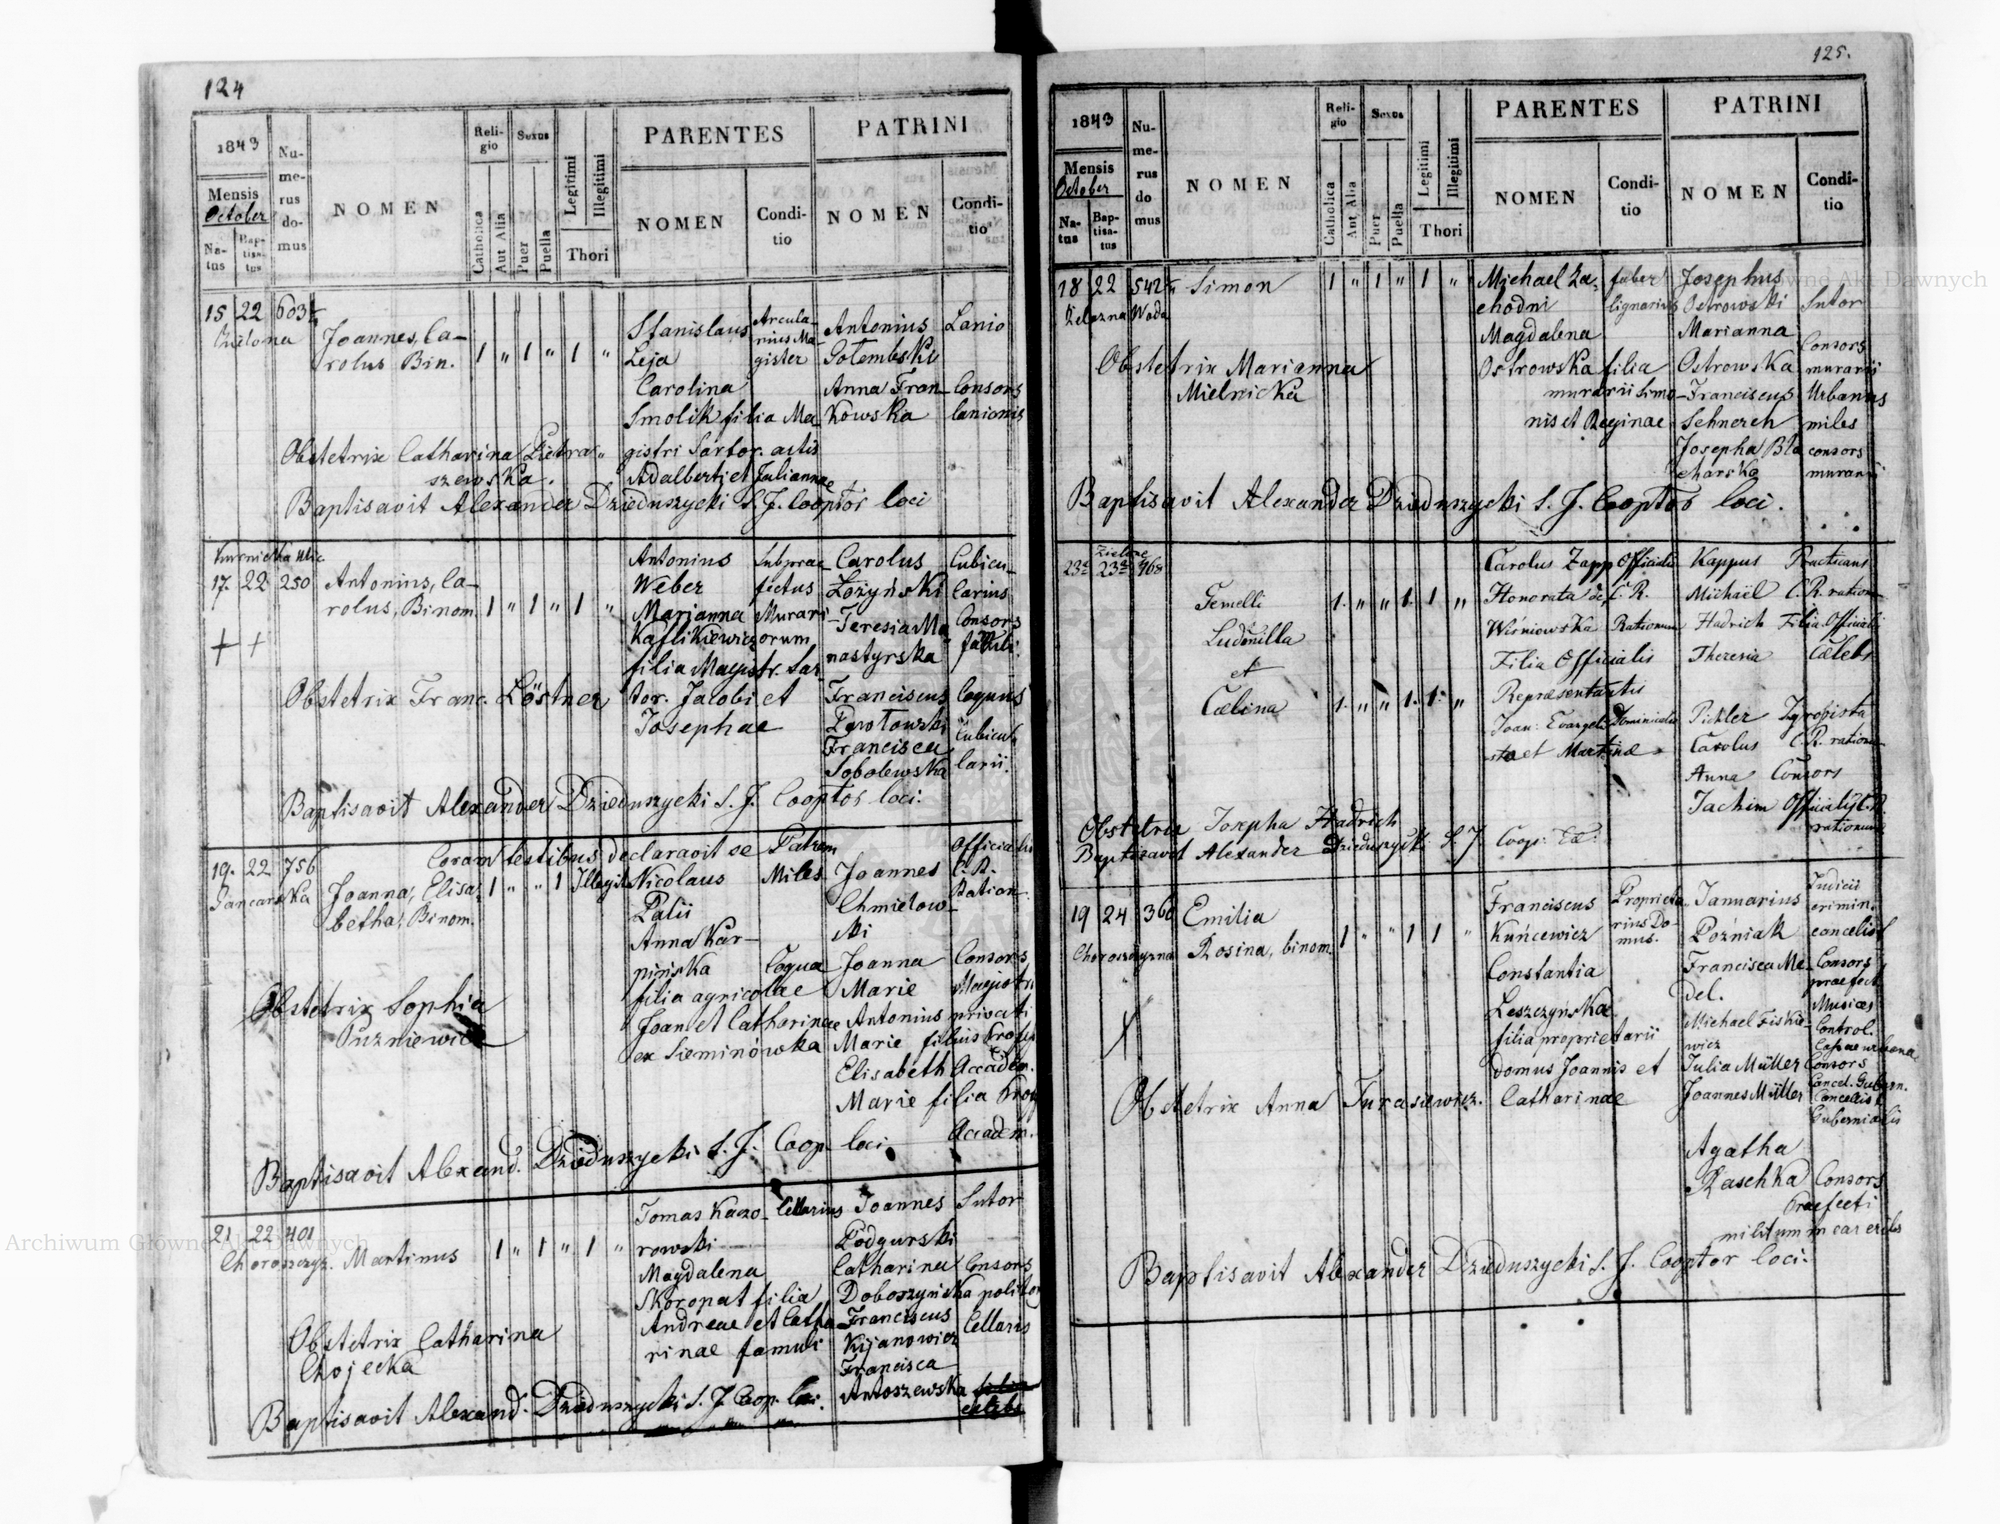 124
1843
Mensis
October
Na-
tus
Bap-
tisa-
tus
Nu-
me-
rus
do-
mus
NOMEN
Reli-
gio
Catholica
Aut Alia
Sexus
Puer
Puella
Legitimi
Illegitimi
Thori
PARENTES
NOMEN
Condi-
tio
PATRINI
NOMEN
Condi-
tio
15 22 603
Joannes, Ca-
rolus Bin.
1 " 1 " 1 "
Stanislaus
Leja
Carolina
Smolik filia Ma-
gistri Sartor. artis
Adalberti et Juliannae
Arcula-
rius Ma-
gister
Antonius
Gołembski
Anna Fran-
kowska
Lanio
Consors
lanionis
Obstetrix Catharina Pietra-
szewska.
Baptisavit Alexander Dzieduszycki S. J. Cooptor loci
17. 22 250
Antonius, Ca-
rolus, Binom.
1 " 1 " 1 "
Antonius
Weber
Marianna
Kaflikiewicz
filia Magistr. Sar-
tor. Jacobi et
Josephae
Subprae-
fectus
Murari-
orum
Carolus
Łożyński
Teresia Mo-
nastyrska
Franciscus
Pawłowski
Francisca
Sobolewska
Cubicu-
larius
Consors
famuli
Coquus
Cubicu-
larii.
Obstetrix Franc. Löstner
Baptisavit Alexander Dzieduszycki S. J. Cooptor loci.
Coram testibus declaravit se Patrem
19. 22 756
Pancarska
Joanna, Elisa-
betha, Binom.
1 " " 1 Illegit
Nicolaus
Palii
Anna Kar-
pińska
filia agricolae
Joan et Catharinae
ex Sieminówska
Miles
Coqua
Joannes
Chmielow-
ski
Joanna
Marie
Antonius
Marie
Elisabeth
Marie filia Prof
Officialis
C. R.
Ration
Consors
Magistri
privati
filius Profes
Accadem.
Accadem.
Obstetrix Sophia
Puzniewicz
Baptisavit Alexand. Dzieduszycki S. J. Coop loci
21 22 401
Chorosczyz. Martinus
1 " 1 " 1 "
Tomas Kaczo-
rowski
Magdalena
Skoropat filia
Andreae et Catha-
rinae famuli
Cellarius
Joannes
Podgurski
Catharina
Doboszyńska
Franciscus
Kijanowicz
Francisca
Antoszewska
Sutor
Consors
politor
Cellaris
celebs
Obstetrix Catharina
Chojecka
Baptisavit Alexand. Dzieduszycki S. J. Coop. loci.
125.
1843
Mensis
October
Na-
tus
Bap-
tisa-
tus
Nu-
me-
rus
do
mus
NOMEN
Reli-
gio
Catholica
Aut Alia
Sexus
Puer
Puella
Legitimi
Illegitimi
Thori
PARENTES
NOMEN
Condi-
tio
PATRINI
NOMEN
Condi-
tio
18 22 542
Żelazna Woda
Simon
1 " 1 " 1 "
Michael Za-
chodni
Magdalena
Ostrowska filia
murarii Simo-
nis et Reginae
faber
lignarius
Josephus
Ostrowski
Marianna
Ostrowska
Franciscus
Sehnereh
Josepha Bla
charska
Sutor
Consors
murarii
Urbanus
miles
consors
murarii
Obstetrix Marianna
Mielnicka
Baptisavit Alexander Dzieduszycki S. J. Cooptor loci.
Zielone
23 23 468
Gemelli
Ludmilla
et
Cælina
1. " " 1. 1 "
1. " " 1. 1. "
Carolus Zapp
Honorata de
Wisniowska
Filia Officialis
Repræsentantis
Joan: Evangeli
stæ et Martinæ
Officialis
C. R.
Rationum
Dominicalis
Kappus
Michaël
Hadrich
Theresia
Pichler
Carolus
Anna
Jachim
Practicans
C. R. ration
Filia Officiali
Cælebs
Zyropista
C. R. ration
Consors
Officialis C. R.
rationum
Obstetrix Josepha Hadrich
Baptisavit Alexander Dzieduszycki S. J. Coop:
19 24 360
Chorosczyzna
Emilia
Rosina, binom.
1 " " 1 1 "
Franciscus
Kuńcewicz
Constantia
Leszczyńska
filia proprietarii
domus Joannis et
Catharinae
Proprieta-
rius Do-
mus.
Januarius
Poźniak
Francisca Me-
del.
Michael Fiskie-
wicz
Julia Müller
Joannes Müller
Agatha
Raschka
Judicii
crimin.
concelist
Consors
praefect.
Musices
Control.
Cassae urbana
Consors
Cancel. Gubern.
Concelist
Gubernialis
Consors
Praefecti
militum in carceribs
Obstetrix Anna Jurasiewicz.
Baptisavit Alexander Dzieduszycki S. J. Cooptor loci.
Archiwum Główne Akt Dawnych
Archiwum Główne Akt Dawnych